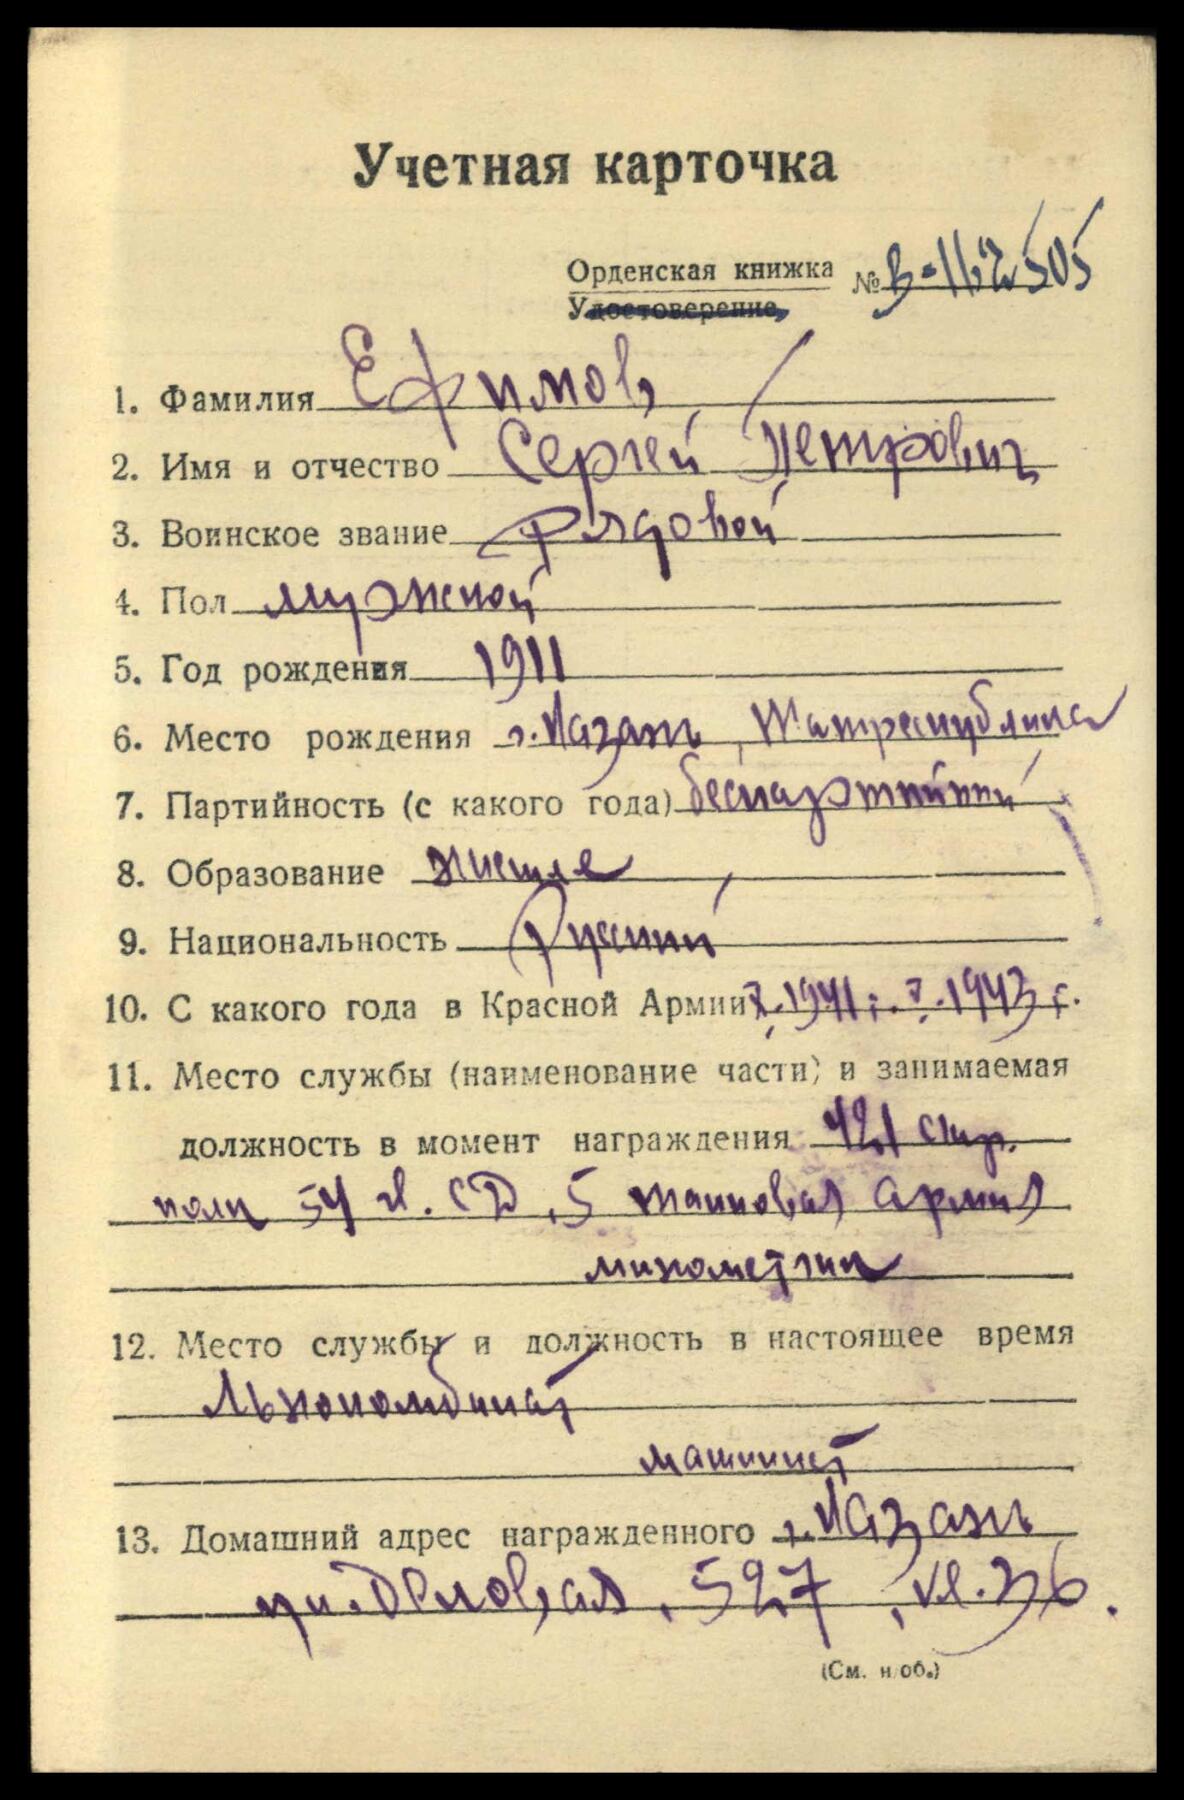 Учетная карточка
Орденская книжка № В-162505
Удостоверение
1. Фамилия Ефимов
2. Имя и отчество Сергей Петрович
3. Воинское звание Рядовой
4. Пол мужской
5. Год рождения 1911
6. Место рождения г. Казань, Татреспублика
7. Партийность (с какого года) беспартийный
8. Образование низшее
9. Национальность Русский
10. С какого года в Красной Армии X.1941 г. V.1943 г.
11. Место службы (наименование части) и занимаемая
должность в момент награждения 421 стр.
полк 54 СД, 5 танковая армия
минометчик
12. Место службы и должность в настоящее время
Льнокомбинат
машинист
13. Домашний адрес награжденного г. Казань
ул. Деловая, 527, кв. 36.
(См. н/об.)